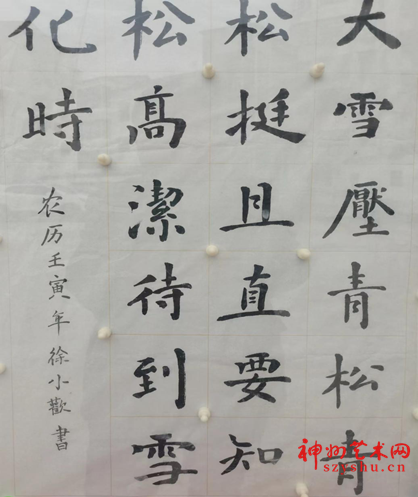 大雪壓青松青
松挺且直要知
松高潔待到雪
化時
农历壬寅年徐小歡書
神州艺术网
szyshu.cn